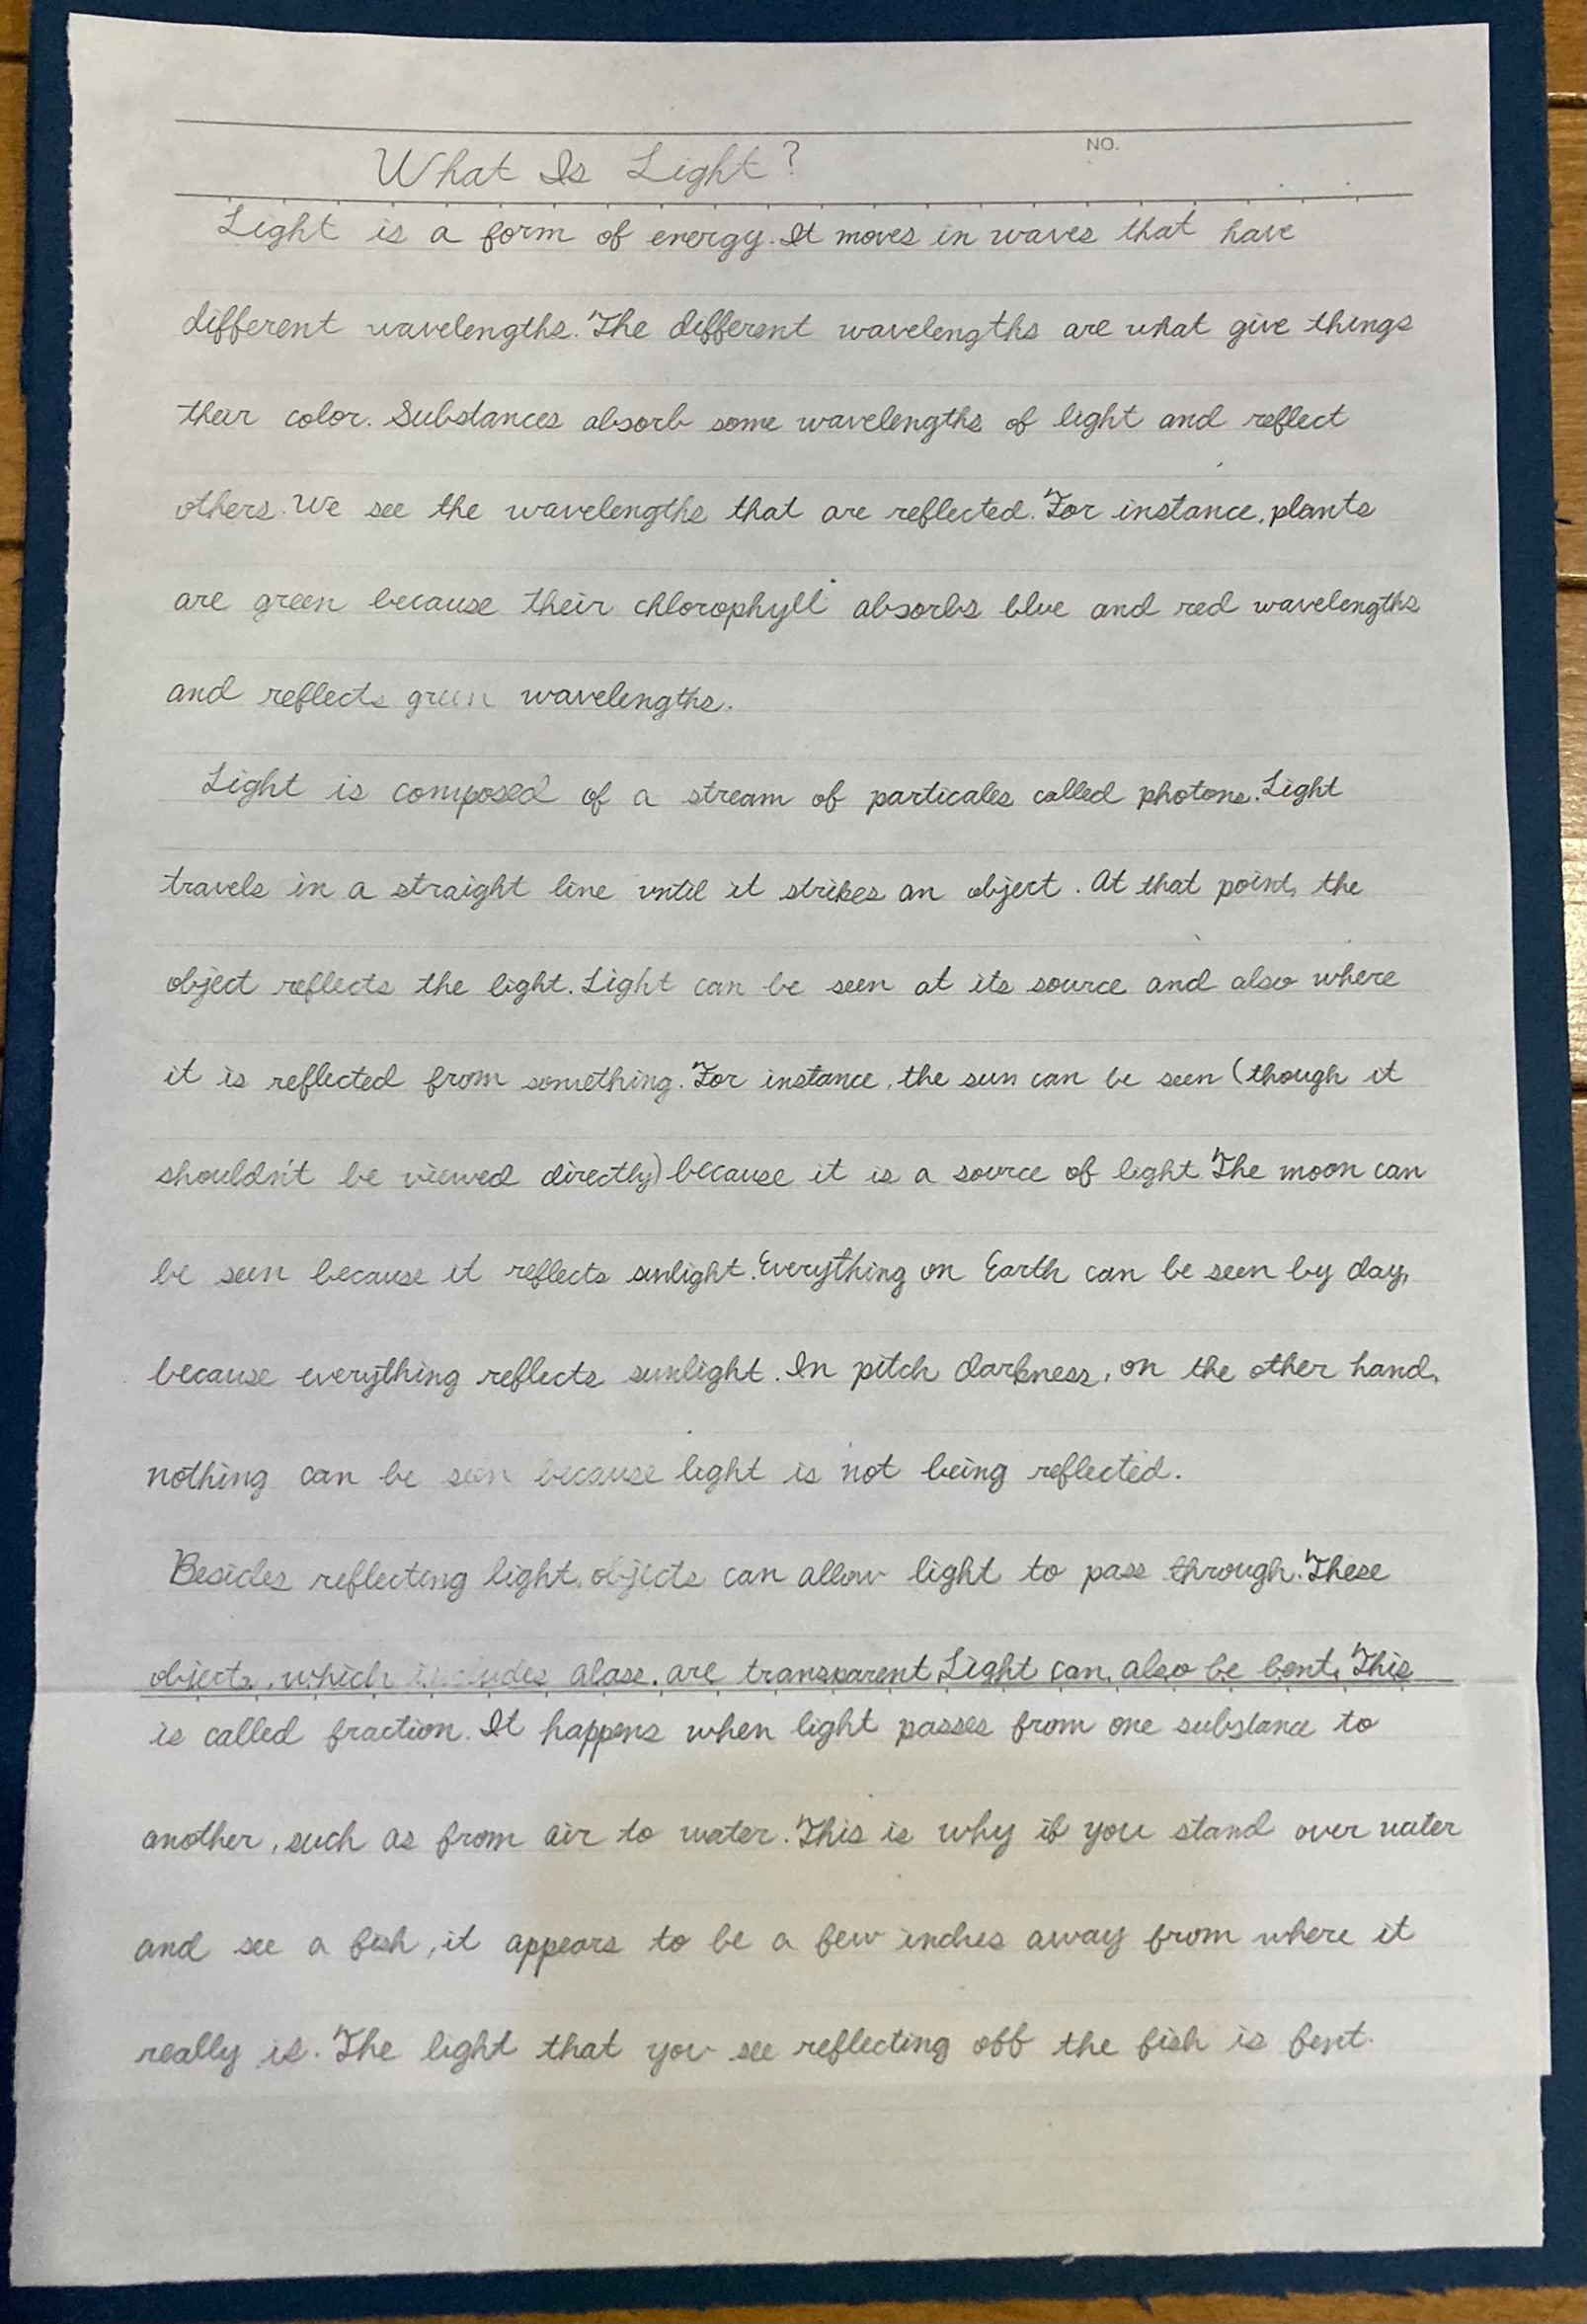 NO.
What Is Light?
Light is a form of energy. It moves in waves that have
different wavelengths. The different wavelengths are what give things
their color. Substances absorb some wavelengths of light and reflect
others. We see the wavelengths that are reflected. For instance, plants
are green because their chlorophyll absorbs blue and red wavelengths
and reflects green wavelengths.
Light is composed of a stream of particales called photons. Light
travels in a straight line until it strikes an object. At that point, the
object reflects the light. Light can be seen at its source and also where
it is reflected from something. For instance, the sun can be seen (though it
shouldn't be viewed directly) because it is a source of light. The moon can
be seen because it reflects sunlight. Everything on Earth can be seen by day,
because everything reflects sunlight. In pitch darkness, on the other hand,
nothing can be seen because light is not being reflected.
Besides reflecting light, objects can allow light to pass through. These
objects, which includes glass, are transparent. Light can also be bent. This
is called fraction. It happens when light passes from one substance to
another, such as from air to water. This is why if you stand over water
and see a fish, it appears to be a few inches away from where it
really is. The light that you see reflecting off the fish is bent.